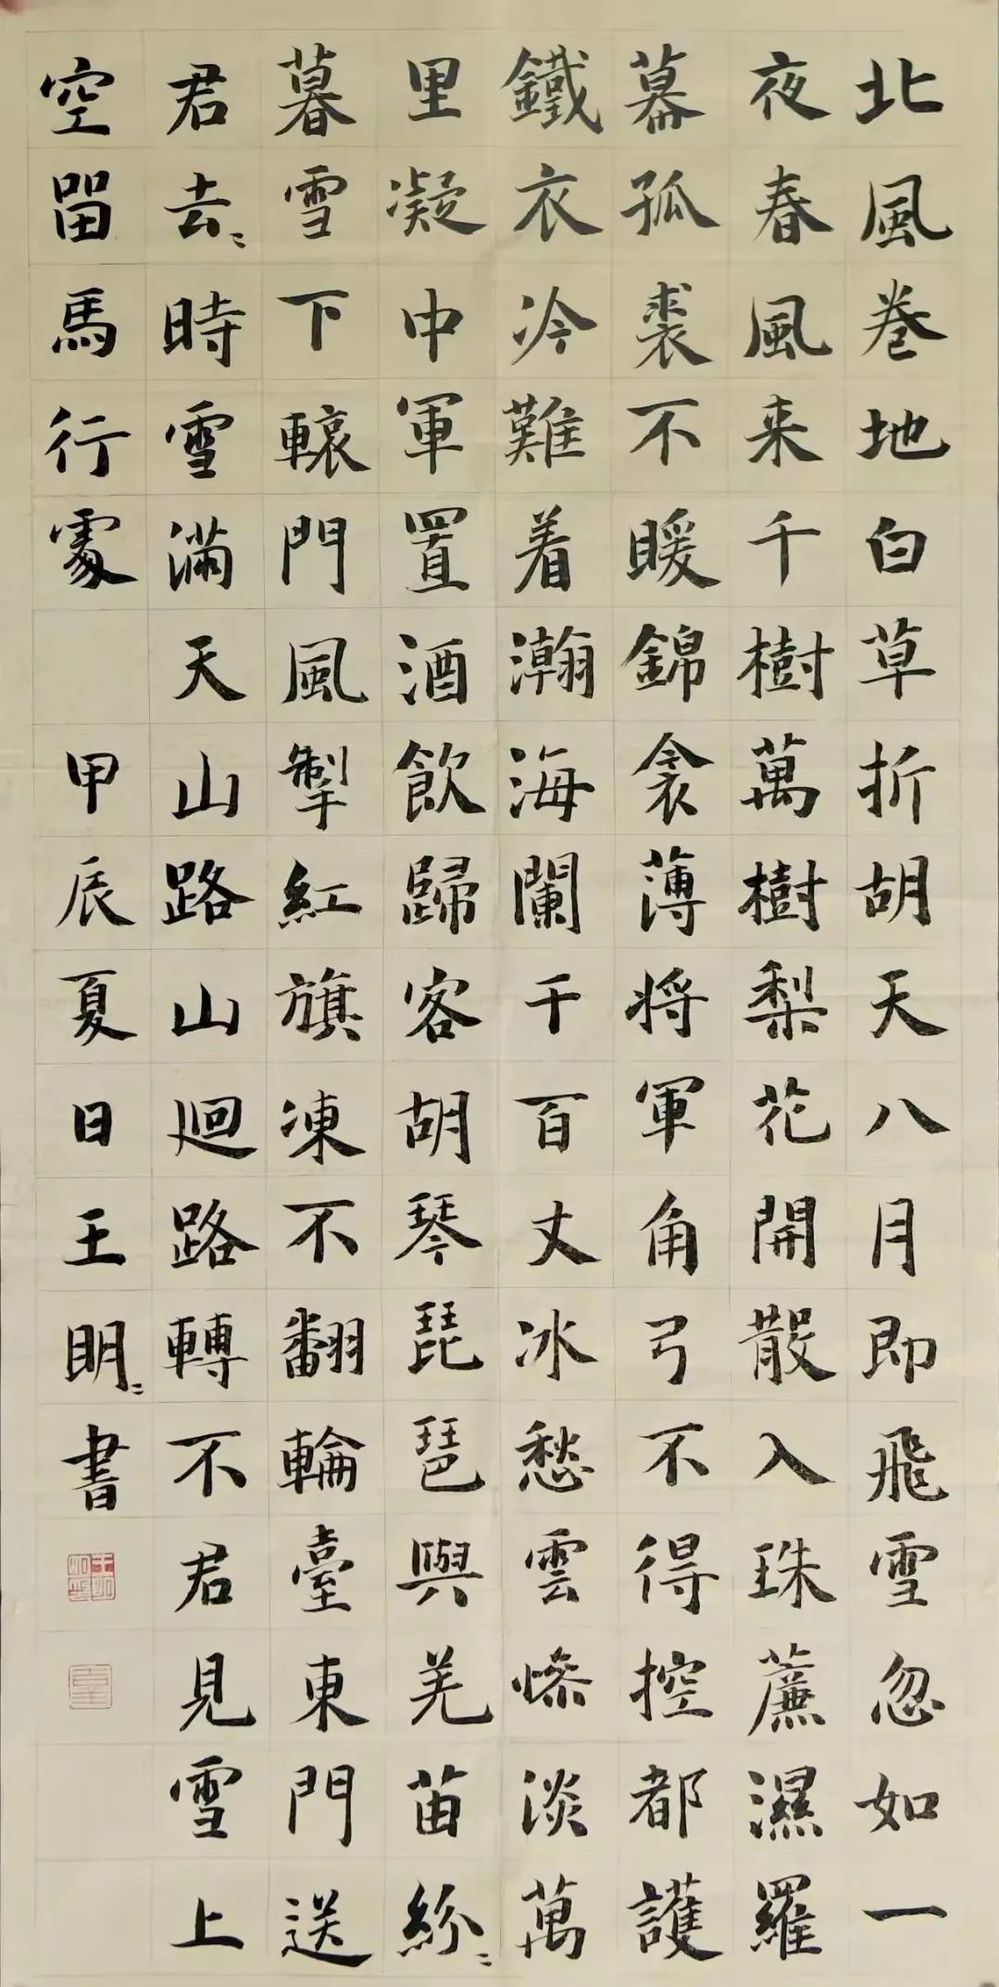 北風卷地白草折胡天八月即飛雪忽如一
夜春風来千樹萬樹梨花開散入珠簾濕羅
幕孤裘不暖錦衾薄将軍角弓不得控都護
鐵衣冷難着瀚海闌干百丈冰愁雲慘淡萬
里凝中軍置酒飲歸客胡琴琵琶與羌笛紛〻
暮雪下轅門風掣紅旗凍不翻輪臺東門送
君去〻時雪滿天山路山迴路轉不君見雪上
空留馬行處 甲辰夏日王明〻書